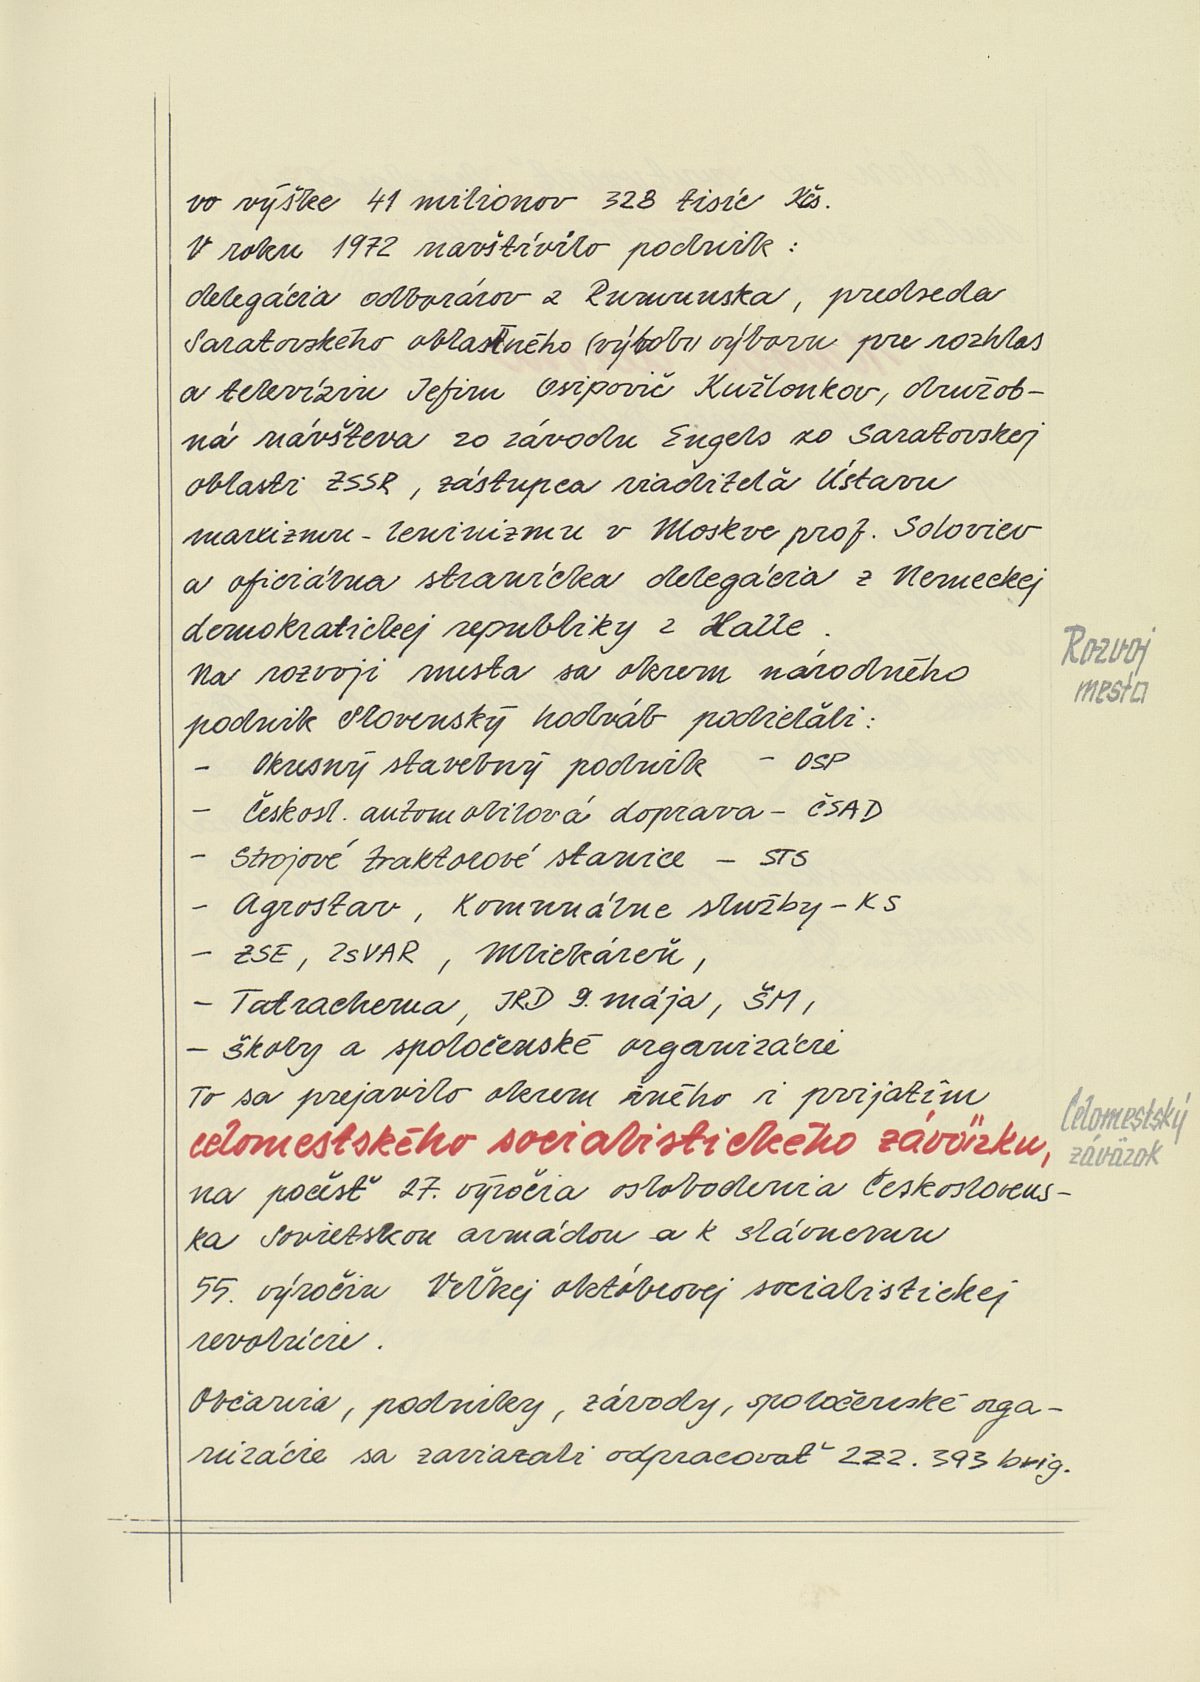 vo výške 41 milionov 328 tisíc Kčs.
V roku 1972 navštívilo podnik :
delegácia odborárov z Rumunska, predseda
Saratovského oblastného (výboru) výboru pre rozhlas
a televíziu Jefim Osipovič Kužlonkov, družob-
ná návšteva zo závodu Engels zo Saratovskej
oblasti ZSSR, zástupca riaditeľa Ústavu
marxizmu-leninizmu v Moskve prof. Soloviev
a oficiálna stranícka delegácia z Nemeckej
demokratickej republiky z Halle.
Na rozvoji mesta sa okrem národného
Rozvoj
mesta
podnik Slovenský hodváb podieľali:
- Okresný stavebný podnik - OSP
- Českosl. automobilová doprava - ČSAD
- Strojové traktorové stanice - STS
- Agrostav, Komunálne služby - KS
- ZSE, ZsVAR, Mliekáreň,
- Tatrachema, JRD 9. mája, ŠM,
- školy a spoločenské organizácie
To sa prejavilo okrem iného i prijatím
celomestského socialistického záväzku,
Celomestský
záväzok
na počesť 27. výročia oslobodenia Českosloven-
ska Sovietskou armádou a k slávnemu
55. výročiu Veľkej októbrovej socialistickej
revolúcie.
Občania, podniky, závody, spoločenské orga-
nizácie sa zaviazali odpracovať 222.393 brig.